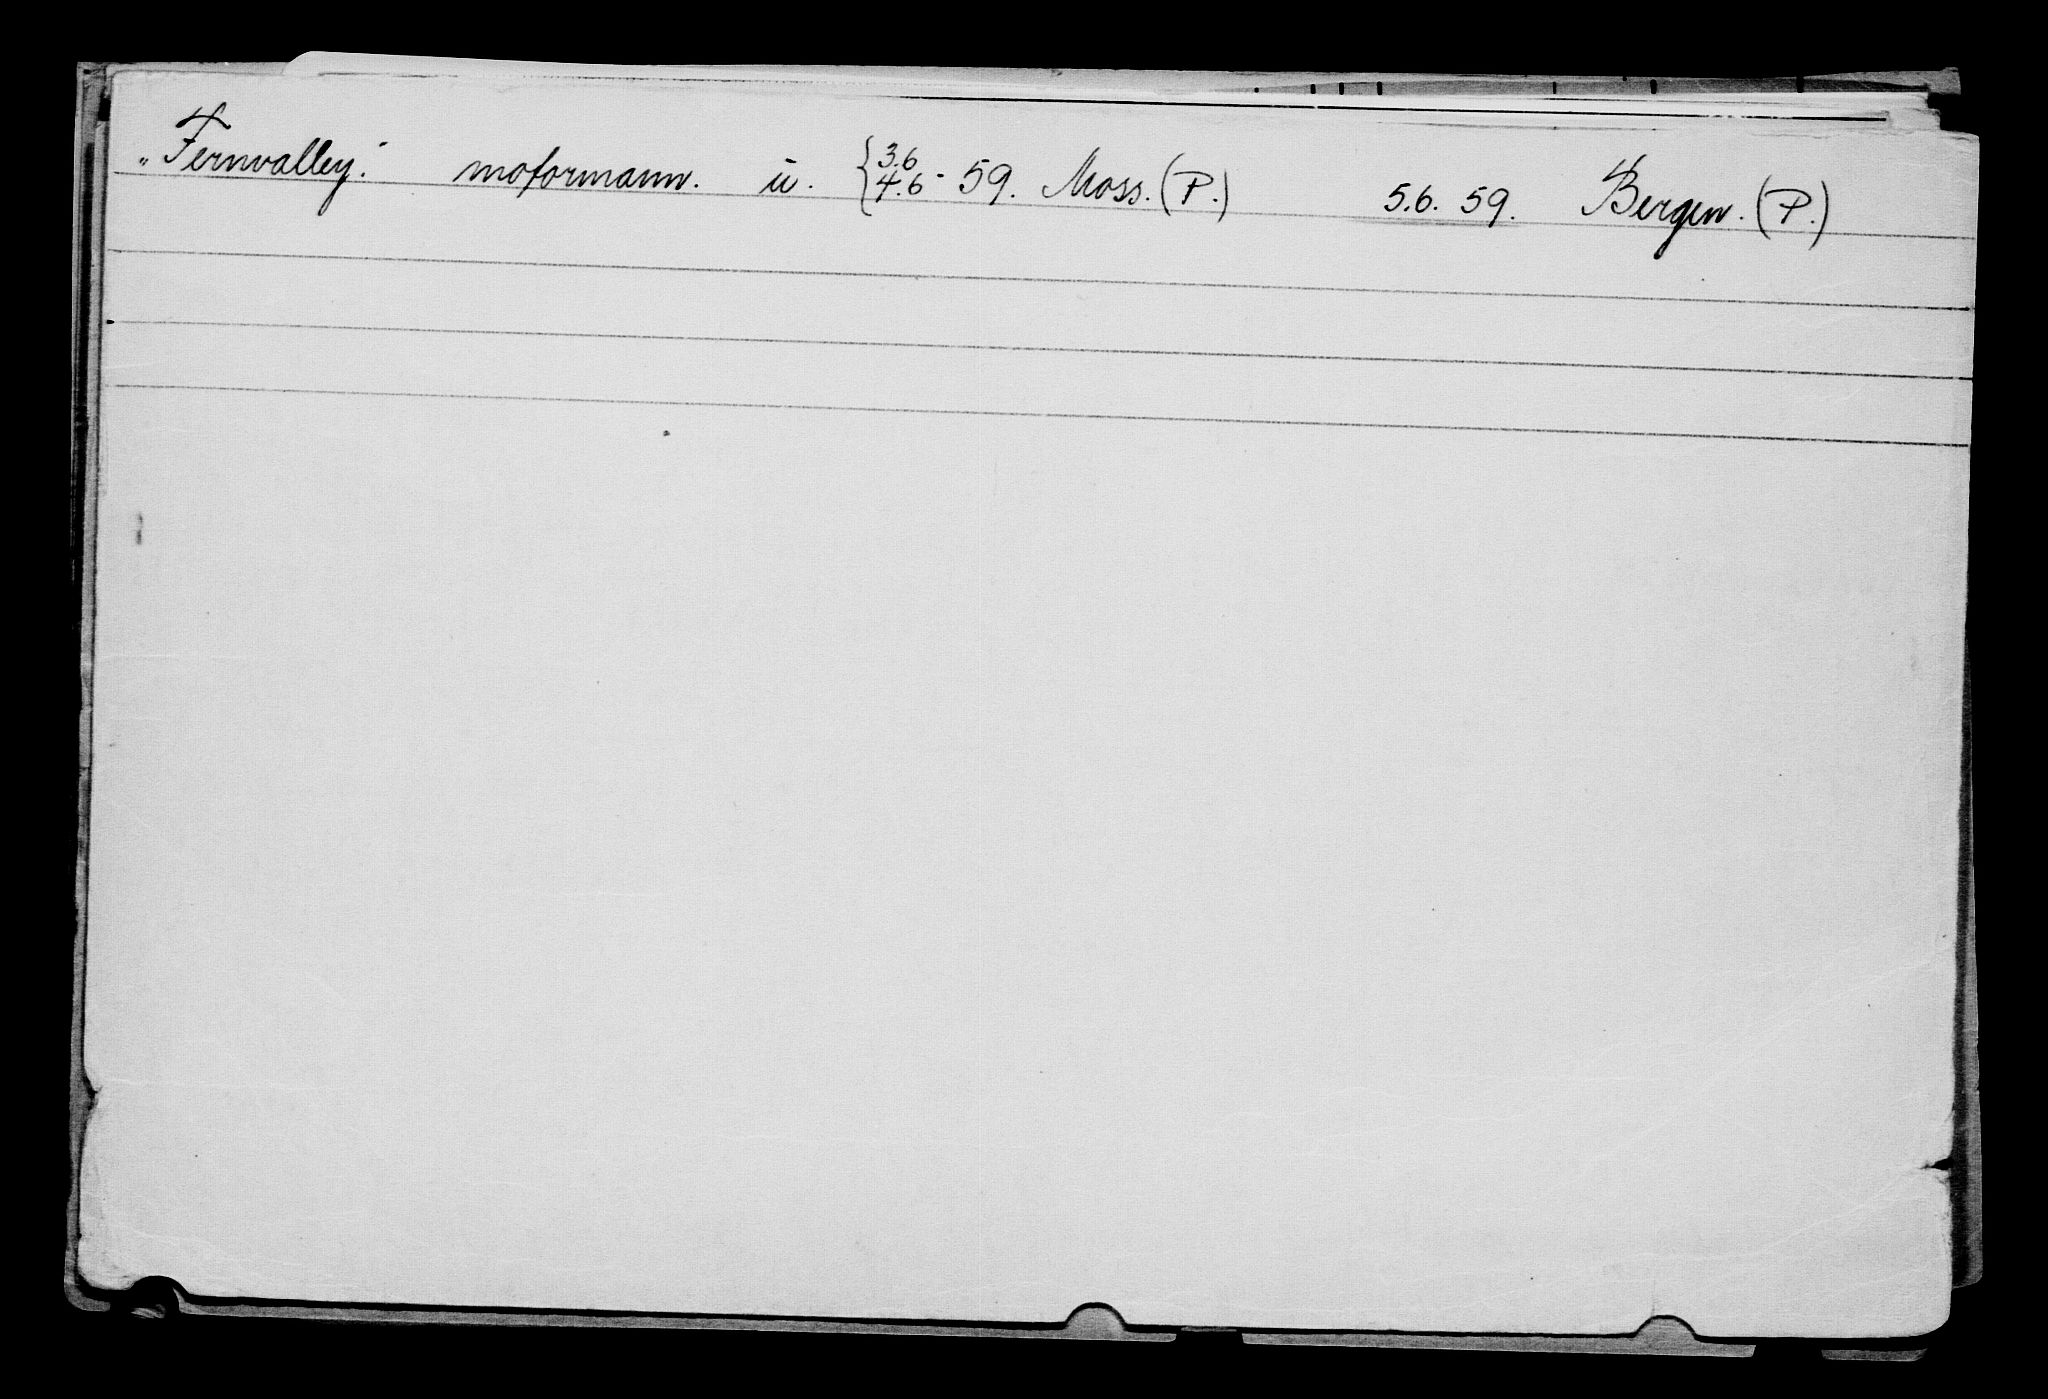 „Fernvalley." motormann. u. {3.6 4.6 - 59. Moss. (P.) 5.6. 59. Bergen. (P.)